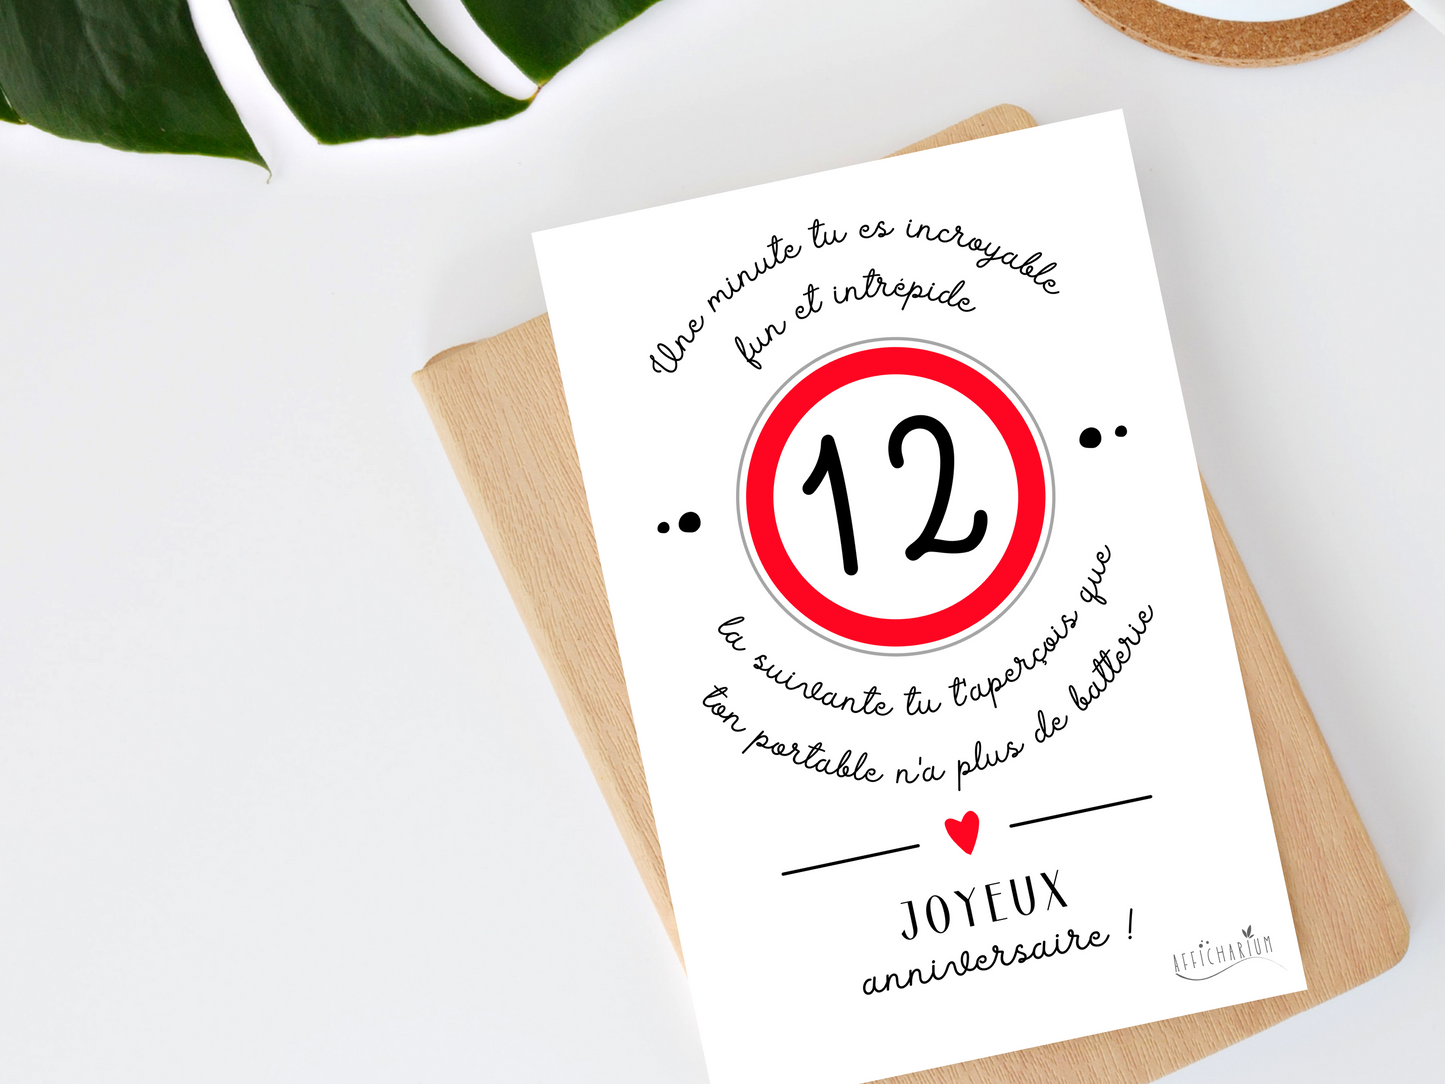 Une minute tu es incroyable
fun et intrépide
12
la suivante tu t'aperçois que
ton portable n'a plus de batterie
JOYEUX
anniversaire !
AFFICHARIUM